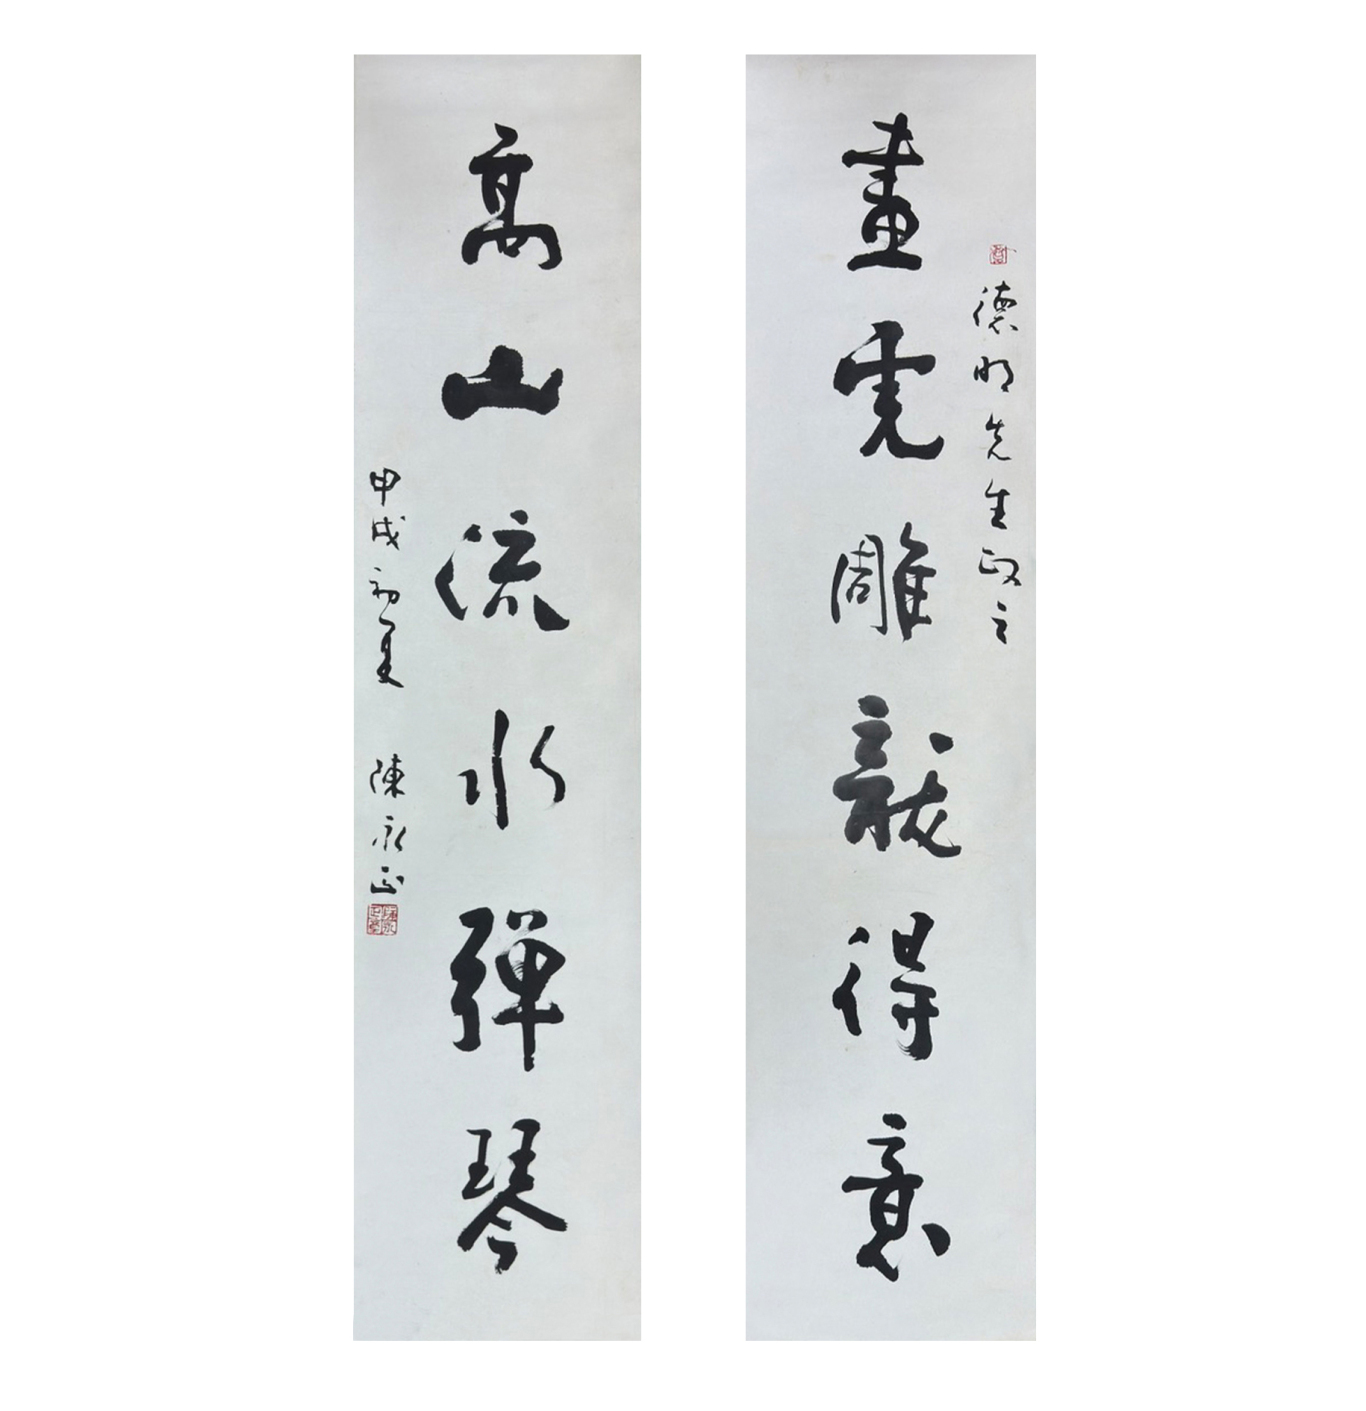 德明先生政之
畫虎雕龍得意
高山流水彈琴
甲戌初夏 陳永正